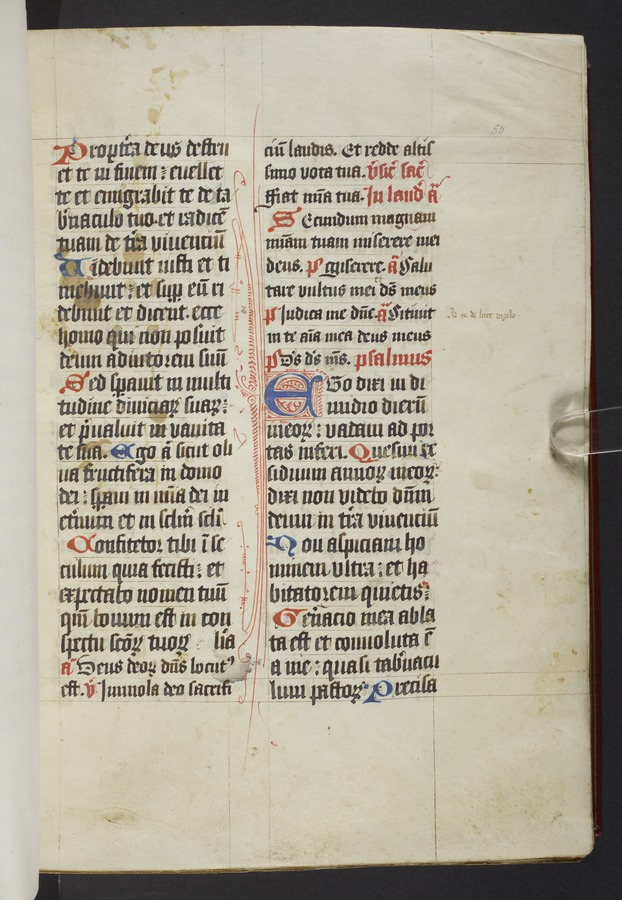 50
Propt̄ea deus destru
et te in finem : euellet
te et emigrabit te de ta
b̄naculo tuo. et radicē
tuam de tr̄a viuenciū
Uidebunt iusti et ti
mebunt : et sup eū ri
debunt et dicent. ecce
homo qui non posuit
deum adiutorem suū
Sed sp̄auit in multi
tudine diuiciaꝝ suaꝝ :
et p̄ualuit in vanita
te sua. Ego ā sicut oli
ua fructifera in domo
dei : sp̄aui in mīa dei in
et̄num et in sc̄lm sc̄li
Confitebor tibi ī se
culum quia fecisti : et
expectabo nomen tuū
qm̄ bonum est in con
spectu sc̄oꝝ tuoꝝ l̄ia
ā Deus deoꝝ dn̄s locut⁹
est. v̄ Immola deo sacrifi
ciū laudis. Et redde altis
simo vota tua. v̄sic̄ sac̄
Fiat mīa tua. In laud̄ ā
Secundum magnam
miām tuam miserere mei
deus. p̄s miserere. ā Salu
tare vultus mei ds̄ meus
p̄s Iudica me dn̄e. ā Sitiuit
in te aīa mea deus meus
p̄s Ds̄ ds̄ ms̄. psalmus
Ego dixi in di
midio dierū
meoꝝ : vadam ad por
tas inferi. Quesiui re
siduum annoꝝ meoꝝ :
dixi non videbo dn̄m
deum in tr̄a viuenciū
Non aspiciam ho
minem vltra : et ha
bitatorem quietis :
Gen̄acio mea abla
ta est et conuoluta ē
a me : quasi tab̄nacu
lum pastoꝝ Precisa
de luce vigilo.